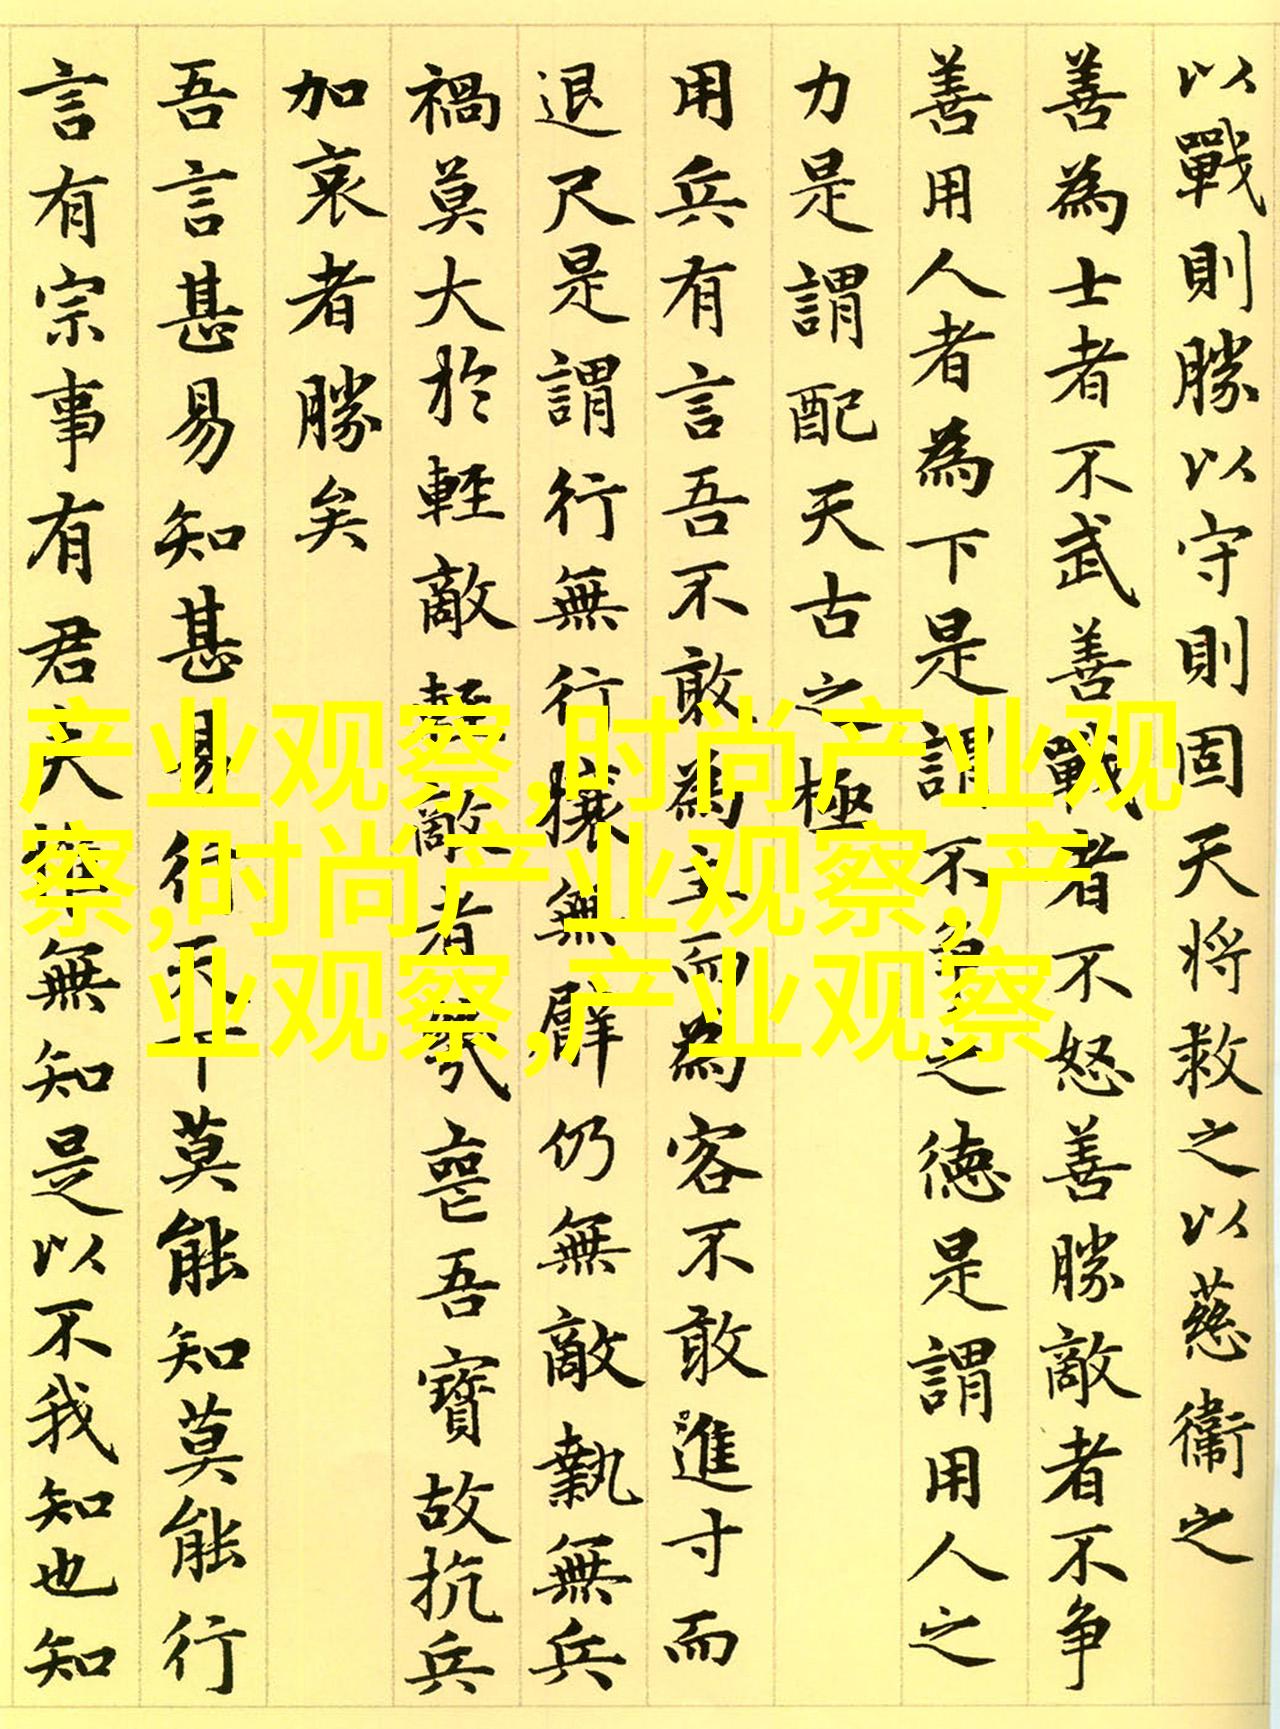 以戰則勝以守則固天將救之以慈衞之
善為士者不武善戰者不怒善勝敵者不争
善用人者為下是謂不争之德是謂用人之
力是謂配天古之極
用兵有言吾不敢為主而為客不敢進寸而
退尺是謂行無行攘無臂仍無敵執無兵
禍莫大於輕敵輕敵者幾喪吾寶故抗兵
加哀者勝矣
吾言甚易知甚易行天下莫能知莫能行
言有宗事有君夫唯無知是以不我知也知
产业观察,时尚产业观
察,时尚产业观察,产
业观察,产业观察